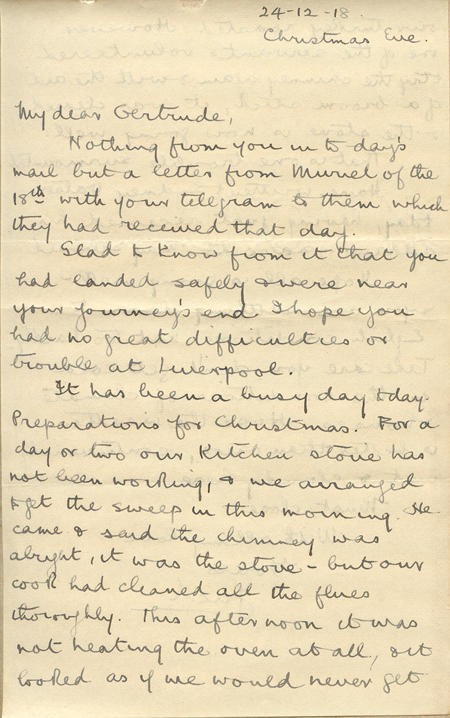 24-12-18.
Christmas Eve.
My dear Gertrude,
Nothing from you in to day's
mail but a letter from Muriel of the
18th with your telegram to them which
they had received that day.
Glad to know from it that you
had landed safely & were near
your journey's end. I hope you
had no great difficulties or
trouble at Liverpool.
It has been a busy day today.
Preparations for Christmas. For a
day or two our Kitchen stove has
not been working, & we arranged
to get the sweep in this morning. He
came & said the chimney was
alright, it was the stove - but our
cook had cleaned all the flues
thoroughly. This afternoon it was
not heating the oven at all, & it
looked as if we would never get